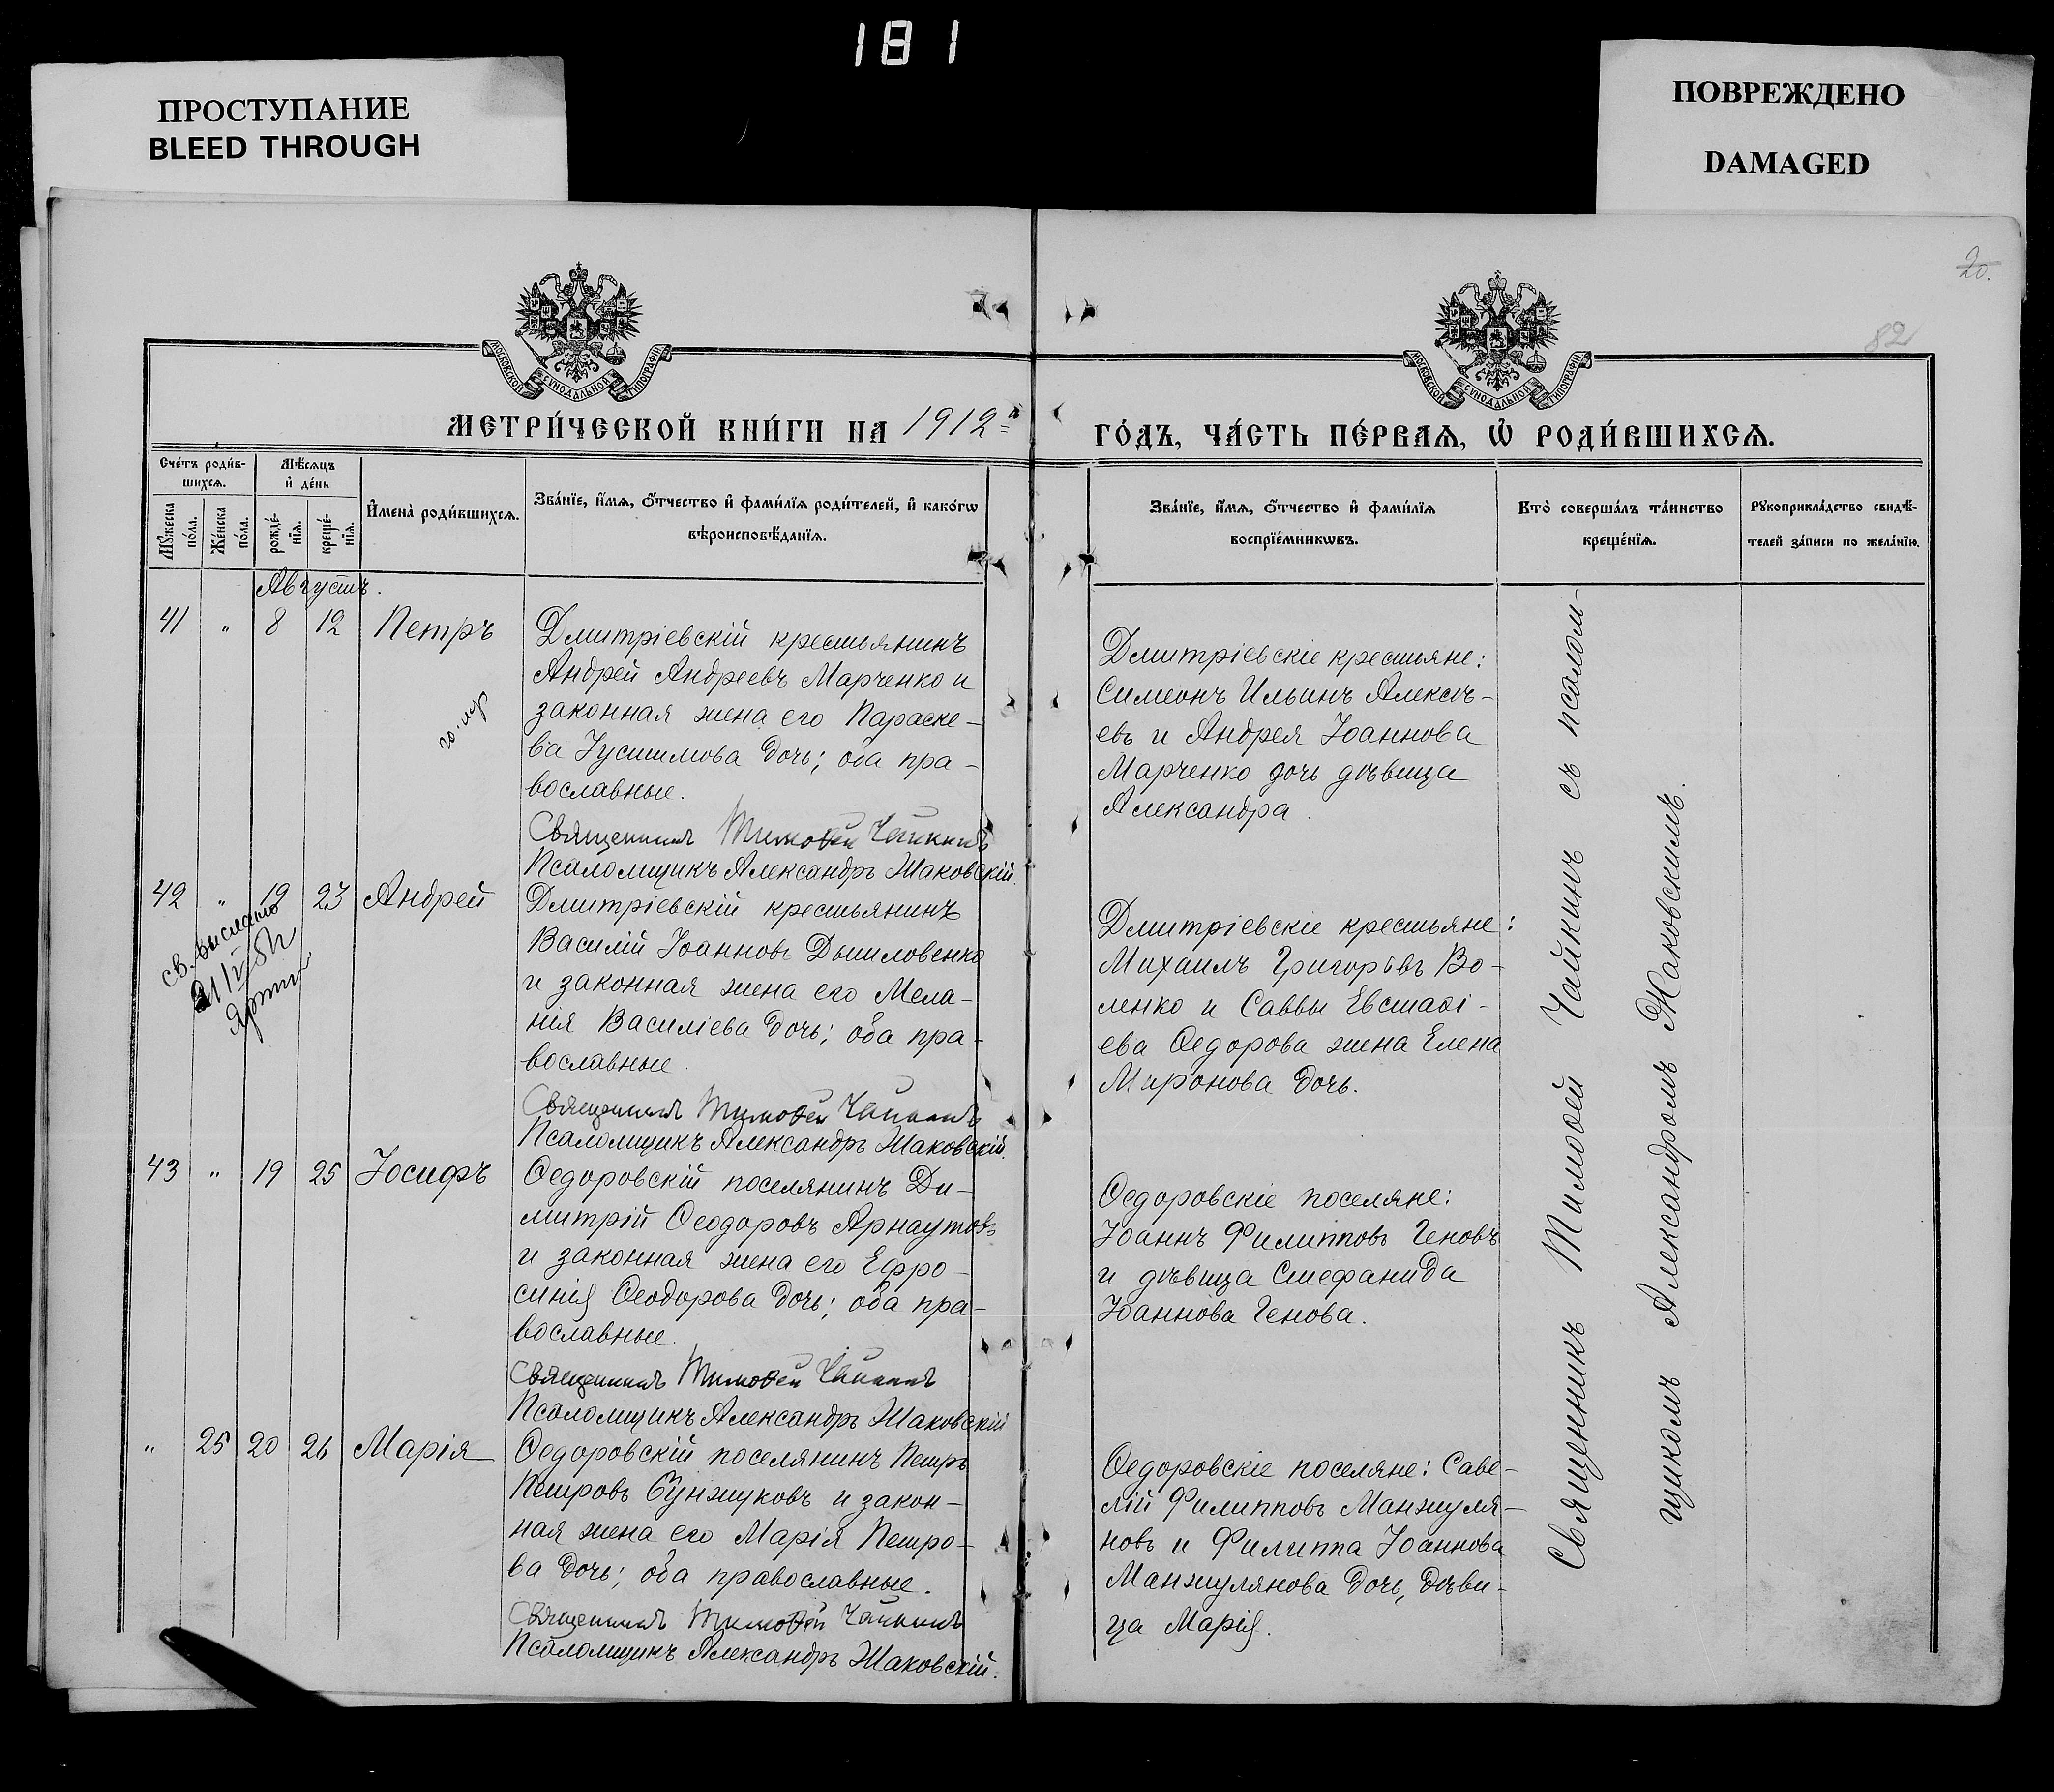 181
ПРОСТУПАНИЕ
BLEED THROUGH
ПОВРЕЖДЕНО
DAMAGED
20.
82
МОСКОВСКОЙ СУНОДАЛЬНОЙ ТИПОГРАФІИ
МОСКОВСКОЙ СУНОДАЛЬНОЙ ТИПОГРАФІИ
МЕТРИ́ЧЕСКОЙ КНИ́ГИ НА 1912
ГО́ДЪ, ЧА́СТЬ ПЕ́РВАѦ, Ѡ҆ РОДИ́ВШИХСѦ.
Сче́тъ роди́в-
шихсѧ.
Мꙋ́жеска по́ла.
Же́нска по́ла.
Мѣ́сѧцъ
и҆ де́нь
рожде́-
нїѧ.
креще́-
нїѧ.
И҆мена̀ роди́вшихсѧ.
Зва́нїе, и҆́мѧ, ѻ҆́тчество и҆ фами́лїѧ роди́телей, и҆ како́гѡ
вѣроисповѣ́данїѧ.
Зва́нїе, и҆́мѧ, ѻ҆́тчество и҆ фами́лїѧ
воспрїе́мникѡвъ.
Кто̀ соверша́лъ та́инство
креще́нїѧ.
Рꙋкоприкла́дство свидѣ́-
телей за́писи по жела́нїю.
Августъ.
41 " 8 12 Петръ
Дмитріевскій крестьянинъ
Андрей Андреевъ Марченко и
законная жена его Параске-
ва дочь; оба пра-
вославные.
Священникъ Тимоѳей Чайкинъ
Псаломщикъ Александръ Жаковскій.
Дмитріевскіе крестьяне:
Симеонъ Ильинъ Алексѣ-
евъ и Андрея Іоаннова
Марченко дочь дѣвица
Александра.
42 " 12 23 Андрей
св. выслано
Дмитріевскій крестьянинъ
Василій Іоанновъ
и законная жена его Мела-
нія Василіева дочь; оба пра-
вославные.
Священникъ Тимоѳей Чайкинъ
Псаломщикъ Александръ Жаковскій.
Дмитріевскіе крестьяне:
Михаилъ Григорьевъ Во-
ленко и Саввы Евстаѳі-
ева Ѳедорова жена Елена
Миронова дочь.
43 " 19 25 Іосифъ
Ѳедоровскій поселянинъ Ди-
митрій Ѳеодоровъ Арнаутовъ
и законная жена его Ефро-
синія Ѳеодорова дочь; оба пра-
вославные.
Священникъ Тимоѳей Чайкинъ
Псаломщикъ Александръ Жаковскій
Ѳедоровскіе поселяне:
Іоаннъ Филипповъ Геновъ
и дѣвица Стефанида
Іоаннова Генова.
" 25 20 26 Марія
Ѳедоровскій поселянинъ Петръ
Петровъ и закон-
ная жена его Марія Петро-
ва дочь; оба православные.
Священникъ Тимоѳей Чайкинъ
Псаломщикъ Александръ Жаковскій.
Ѳедоровскіе поселяне: Саве-
лій Филипповъ Манжуля-
новъ и Филиппа Іоаннова
Манжулянова дочь, дѣви-
ца Марія.
Священникъ Тимоѳей Чайкинъ съ псалом-
щикомъ Александромъ Жаковскимъ.